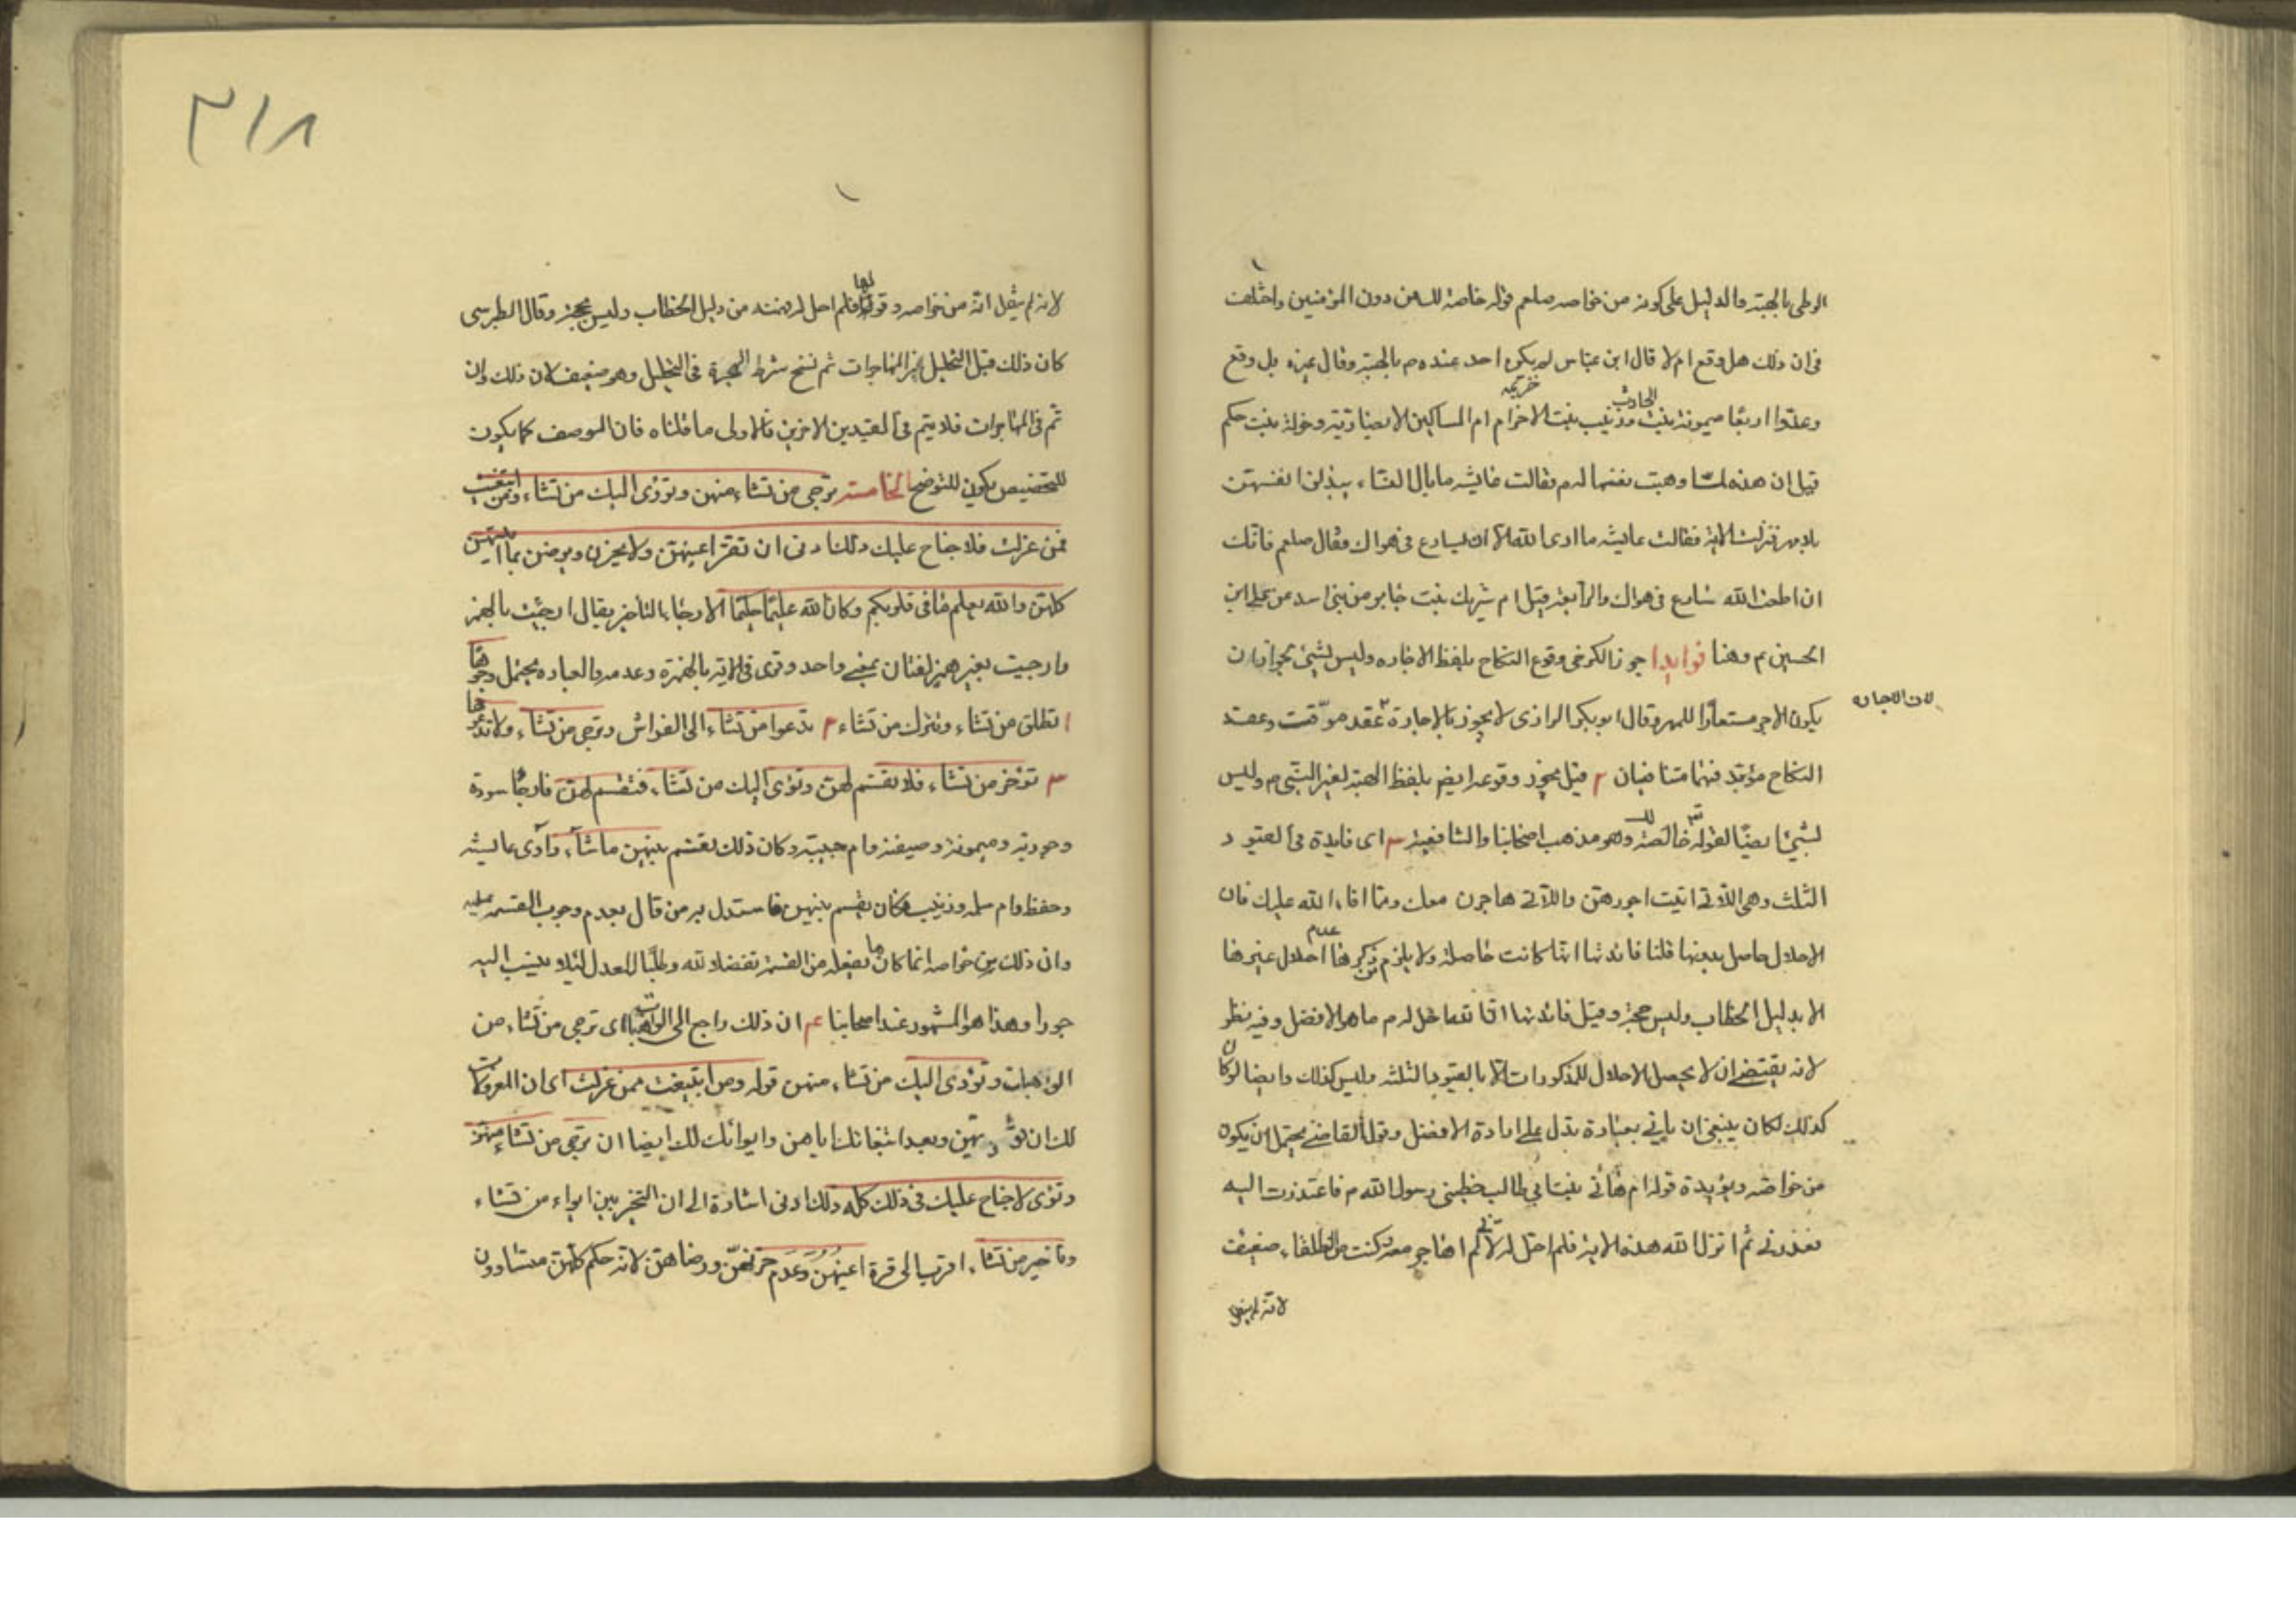 الوطى بالهبة والدليل على كونه من خواصه صلعم قوله خاصة لك من دون المؤمنين واختلف
فى ان ذلك هل وقع ام لا قال ابن عباس لم يكن احد عنده م بالهبة وقال غيره بل وقع
وعدّوا اربعا ميمونة بنت الحارث وزينب بنت خزيمه ام المساكين الانصارية وخولة بنت حكم
قيل ان هذه لمّا وهبت نفسها له م فقالت عايشه ما بال النساء يبذلن انفسهن
بلا مهر فنزلت الاية فقالت عايشه ما ارى الله الا ان يسارع فى هواك فقال صلعم فانك
ان اطعت الله سارع فى هواك والرابعة قيل ام شريك بنت جابر من بنى اسد عن على ابن
الحسين م وهنا فوايد ا جوز الكرخى وقوع النكاح بلفظ الاجاره وليس بشيئ لجواز ان
يكون الاجر مستعارا للمهر وقال ابو بكر الرازى لا يجوز بالاجارة عقد موقت وعقد
لان الاجاره
النكاح مؤبد فهما متنافيان ٢ قيل يجوز وقوعه ايضا بلفظ الهبة لغير النبى م وليس
بشيئ ايضا لقوله خالصة لك وهو مذهب اصحابنا والشافعية ٣ اى فايدة فى القيود
الثلث وهى اللاتى اتيت اجورهن واللاتى هاجرن معك ومما افاء الله عليك فان
الاحلال حاصل بدونها قلنا فائدتها انها كانت حاصلة ولا يلزم من ذكرها عدم احلال غيرها
الا بدليل الخطاب وليس حجة وقيل فائدتها له م ما هو الافضل وفيه نظر
لانه يقتضى ان لا يحصل الاحلال للمذكورات الا بالقيود الثلثه وليس كذلك وايضا لو كان
كذلك لكان ينبغى ان ياتى بعبارة تدل على ارادة الافضل وقول القاضى يحتمل ان يكون
من خواصه ويؤيده قول ام هانى بنت ابى طالب خطبنى رسول الله م فاعتذرت اليه
فعذرنى ثم انزل الله هذه الاية فلم احل له لانى لم اهاجر معه كنت من الطلقاء ضعيف
لانه لم ينقل
٣١٨
لانه لم ينقل انه من خواصه وقولها فلم احل له فهمته من دليل الخطاب وليس بحجة وقال الطبرسى
كان ذلك قبل التحليل غير المهاجرات ثم نسخ شرط الهجرة فى التحليل وهو ضعيف لان ذلك وان
تم فى المهاجرات فلا يتم فى القيدين الاخرين فالاولى ما قلناه فان الوصف كما يكون
للتخصيص يكون للتوضيح الخامسة ترجى من تشاء منهن وتؤوى اليك من تشاء ومن ابتغيت
ممن عزلت فلا جناح عليك ذلك ادنى ان تقر اعينهن ولا يحزن ويرضين بما اتيتهن
كلهن والله يعلم ما فى قلوبكم وكان الله عليما حليما الارجاء التاخير يقال ارجئت بالهمز
وارجيت بغير همز لغتان بمعنى واحد وقرى فى الاية بالهمزة وعدمه والعباره يحتمل وجوها
ا تطلق من تشاء وتترك من تشاء ٢ تدعوا من تشاء الى الفراش وترجى من تشاء ولا تدعوها
٣ تؤخر من تشاء فلا تقسم لهن وتؤوى اليك من تشاء فتقسم لهن فارجا سودة
وجويرية وميمونة وصيفة وام حبيبة وكان ذلك يقسم بينهن ما شاء وآوى عايشه
وحفظه وام سلمه وزينب فكان يقسم بينهن فاستدل به من قال بعدم وجوب القسمة عليه
وان ذلك من خواصه انما كان ما يفعله من القسمة تفضلا لله وطلبا للعدل لئلا ينسب اليه
جورا وهذا هو المشهور عند اصحابنا ٤ ان ذلك راجع الى الواهبات اى ترجى من تشاء من
الواهبات وتؤوى اليك من تشاء منهن قوله ومن ابتغيت ممن عزلت اى ان المعزولات
لك ان تؤويهن وبعد ابتغائك اياهن وايوائك لك ايضا ان ترجى من تشاء منهن
وتؤوى لا جناح عليك فى ذلك كله ذلك ادنى اشارة الى ان التخير بين ايواء من تشاء
وتاخير من تشاء اقرب الى قرة اعينهن وعدم حزنهن ورضاهن لانه حكم كلهن متساوون